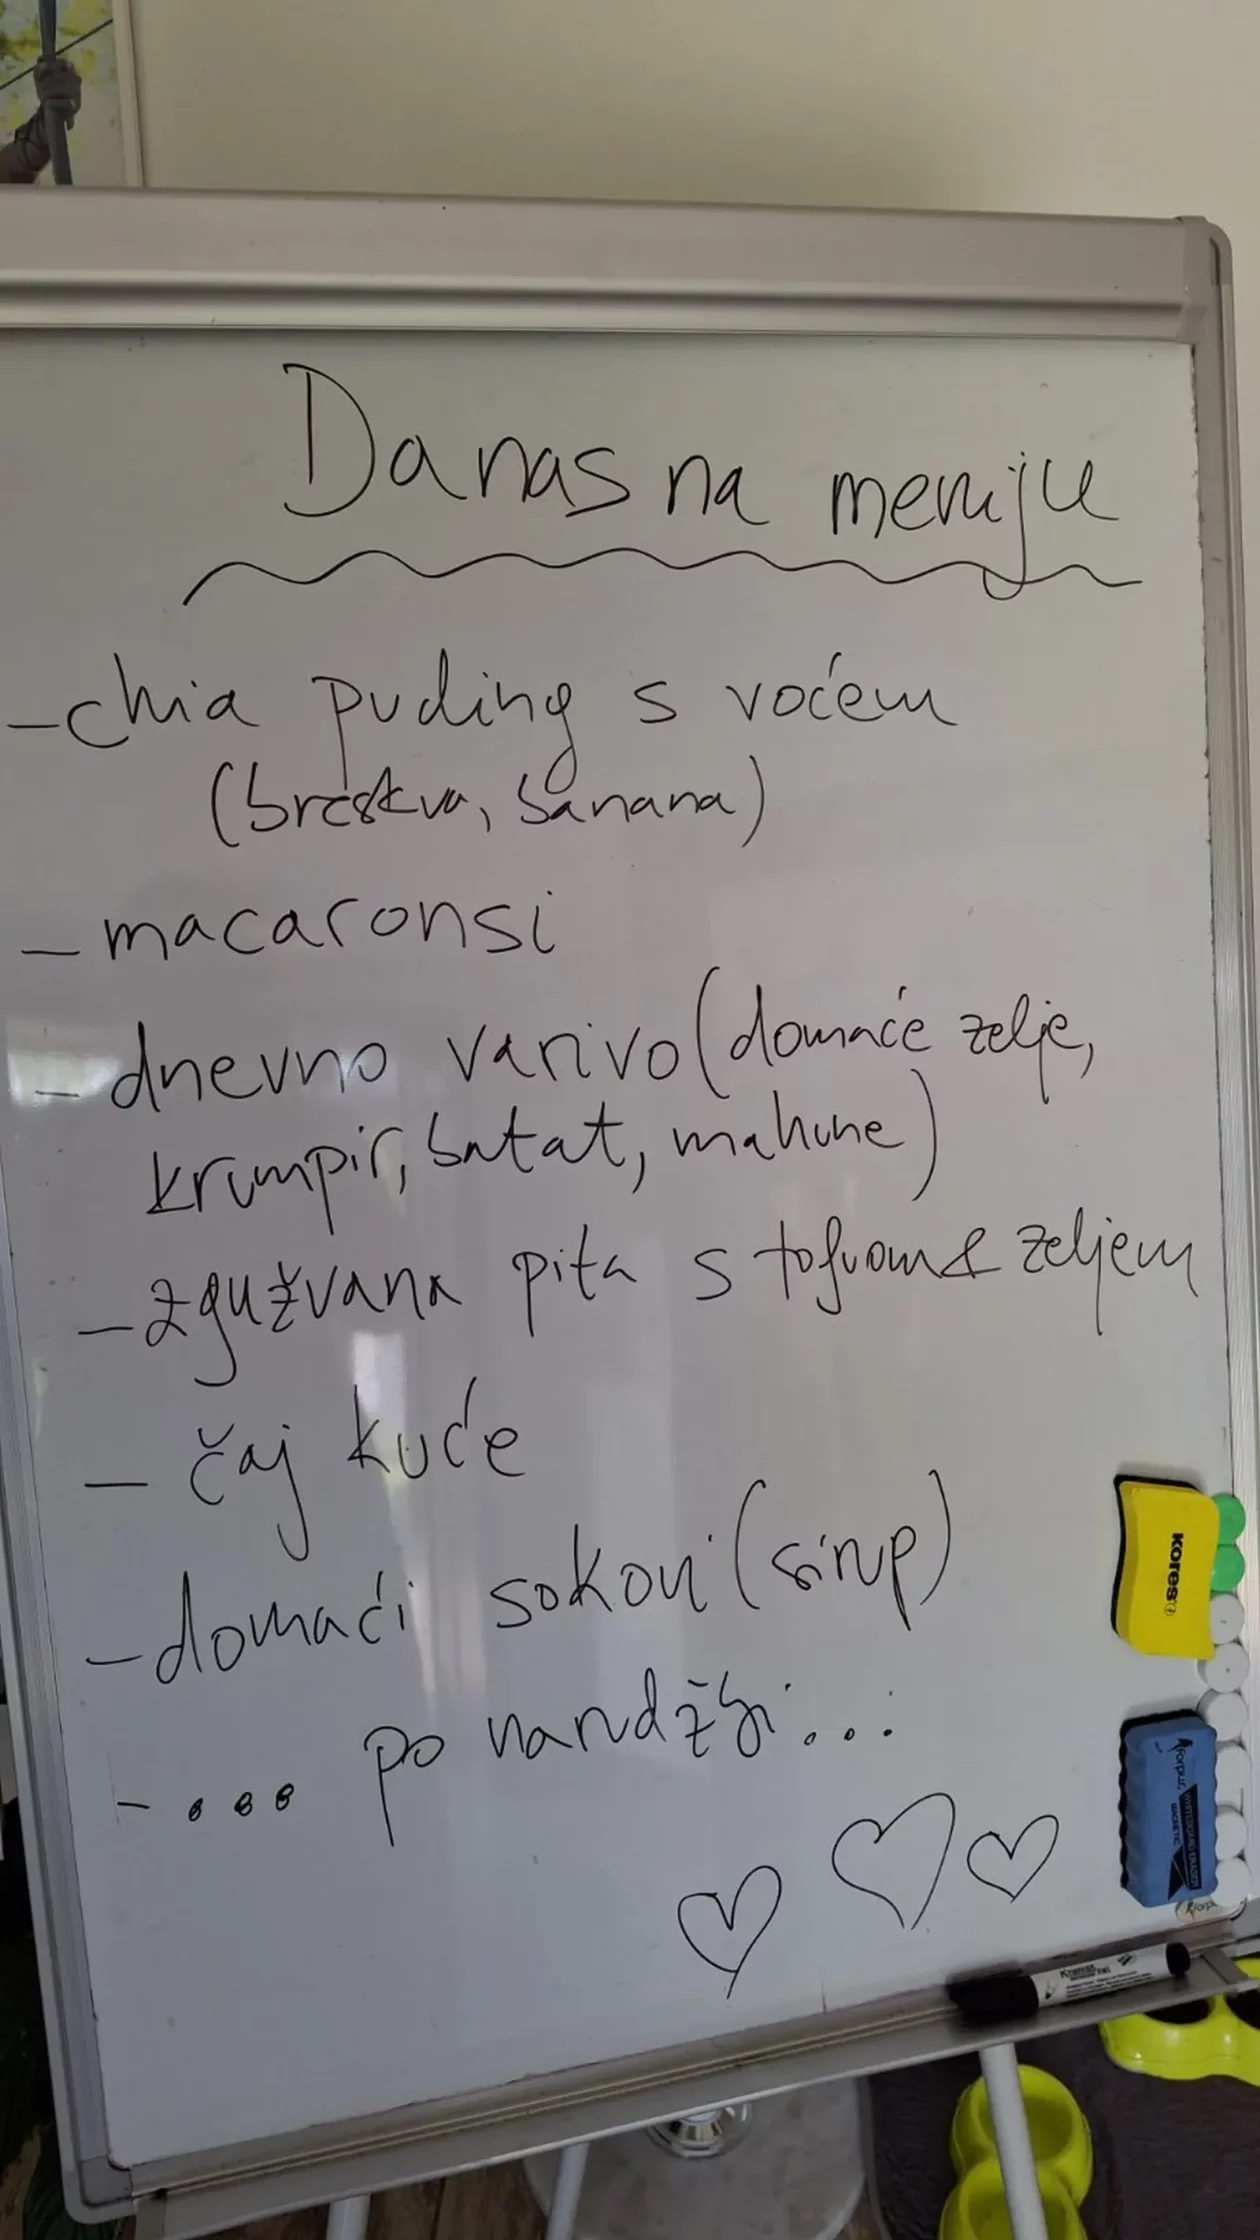 Danas na meniju
- chia puding s voćem
(breskva, banana)
- macaronsi
- dnevno varivo (domaće zelje,
krumpir, batat, mahune)
- zgužvana pita s tofuom & zeljem
- čaj kuće
- domaći sokovi (sirup)
- ... po narudžbi...
kores
forpus
WHITEBOARD ERASER
MAGNETIC